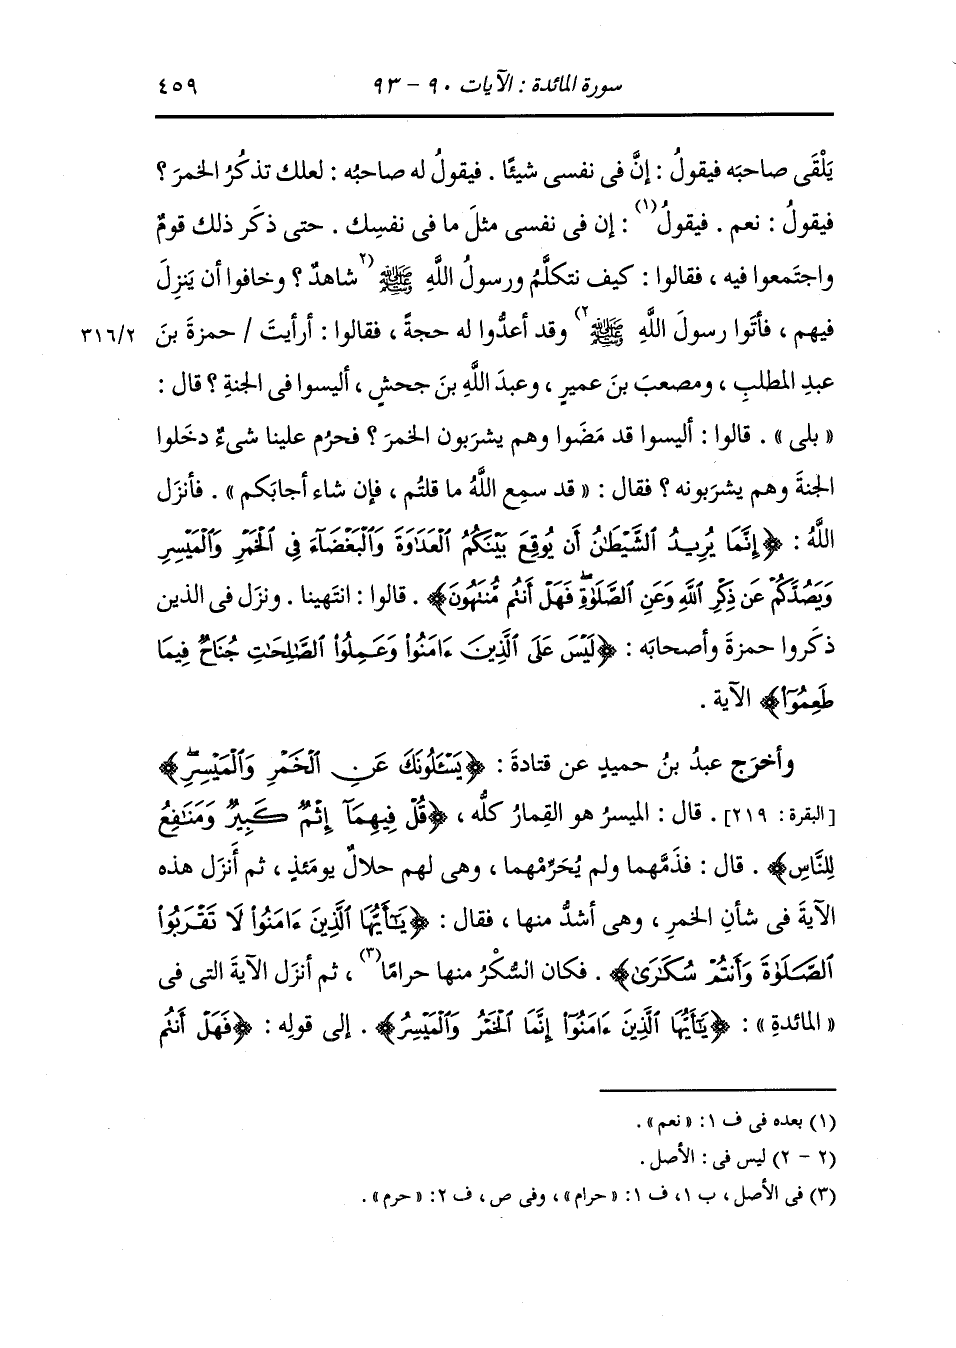 سورة المائدة : الآيات ٩٠ - ٩٣ ٤٥٩
يَلْقَى صاحبَه فيقولُ : إنَّ فى نفسى شيئًا . فيقولُ له صاحبُه : لعلك تذكُرُ الخمرَ ؟
فيقولُ : نعم . فيقولُ(١) : إن فى نفسى مثلَ ما فى نفسِك . حتى ذكَر ذلك قومٌ
واجتَمعوا فيه ، فقالوا : كيف نتكلَّمُ ورسولُ اللَّهِ ﷺ (٢شاهدٌ ؟ وخافوا أن يَنزِلَ
فيهم ، فأتَوا رسولَ اللَّهِ ﷺ٢) وقد أعدُّوا له حجةً ، فقالوا : أرأيتَ / حمزةَ بنَ ٣١٦/٢
عبدِ المطلبِ ، ومصعبَ بنَ عميرٍ ، وعبدَ اللَّهِ بنَ جحشٍ ، أليسوا فى الجنةِ ؟ قال :
« بلى » . قالوا : أليسوا قد مَضَوا وهم يشرَبون الخمرَ ؟ فحرُم علينا شىءٌ دخَلوا
الجنةَ وهم يشرَبونه ؟ فقال : « قد سمِع اللَّهُ ما قلتُم ، فإن شاء أجابَكم » . فأنزَل
اللَّهُ : ﴿إِنَّمَا يُرِيدُ ٱلشَّيْطَٰنُ أَن يُوقِعَ بَيْنَكُمُ ٱلْعَدَٰوَةَ وَٱلْبَغْضَآءَ فِى ٱلْخَمْرِ وَٱلْمَيْسِرِ
وَيَصُدَّكُمْ عَن ذِكْرِ ٱللَّهِ وَعَنِ ٱلصَّلَوٰةِۖ فَهَلْ أَنتُم مُّنتَهُونَ﴾ . قالوا : انتَهينا . ونزَل فى الذين
ذكَروا حمزةَ وأصحابَه : ﴿لَيْسَ عَلَى ٱلَّذِينَ ءَامَنُوا۟ وَعَمِلُوا۟ ٱلصَّٰلِحَٰتِ جُنَاحٌ فِيمَا
طَعِمُوٓا۟﴾ الآية .
وأخرَج عبدُ بنُ حميدٍ عن قتادةَ : ﴿يَسْـَٔلُونَكَ عَنِ ٱلْخَمْرِ وَٱلْمَيْسِرِۖ﴾
[البقرة : ٢١٩] . قال : الميسرُ هو القِمارُ كلُّه ، ﴿قُلْ فِيهِمَآ إِثْمٌ كَبِيرٌ وَمَنَٰفِعُ
لِلنَّاسِ﴾ . قال : فذَمَّهما ولم يُحَرِّمْهما ، وهى لهم حلالٌ يومَئذٍ ، ثم أَنزَل هذه
الآيةَ فى شأنِ الخمرِ ، وهى أشدُّ منها ، فقال : ﴿يَٰٓأَيُّهَا ٱلَّذِينَ ءَامَنُوا۟ لَا تَقْرَبُوا۟
ٱلصَّلَوٰةَ وَأَنتُمْ سُكَٰرَىٰ﴾ . فكان السُّكْرُ منها حرامًا(٣) ، ثم أنزَل الآيةَ التى فى
« المائدةِ » : ﴿يَٰٓأَيُّهَا ٱلَّذِينَ ءَامَنُوٓا۟ إِنَّمَا ٱلْخَمْرُ وَٱلْمَيْسِرُ﴾ . إلى قولِه : ﴿فَهَلْ أَنتُم
(١) بعده فى ف ١ : « نعم » .
(٢ - ٢) ليس فى : الأصل .
(٣) فى الأصل ، ب ١، ف ١ : « حرام » ، وفى ص ، ف ٢ : « حرم » .